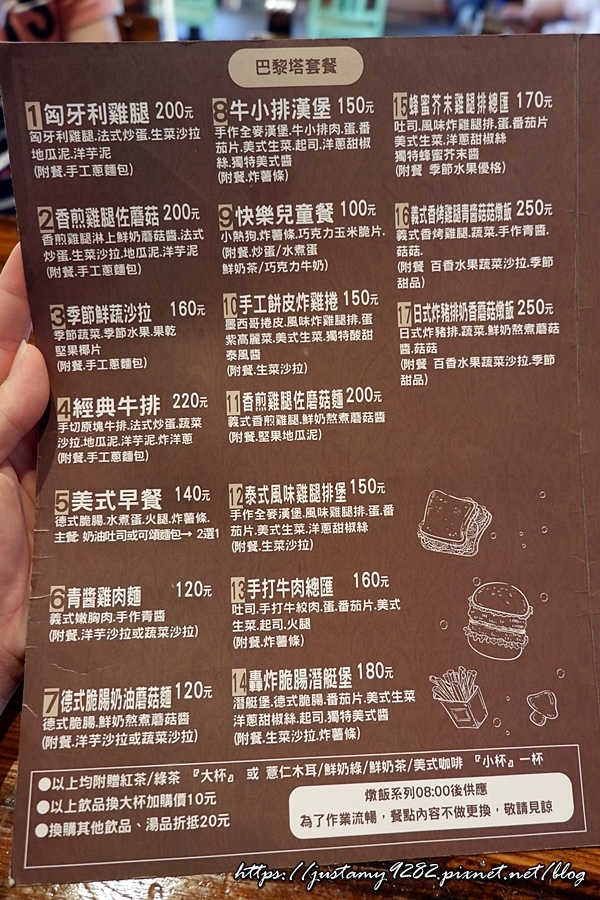 巴黎塔套餐
1 匈牙利雞腿 200元
匈牙利雞腿.法式炒蛋.生菜沙拉
地瓜泥.洋芋泥
(附餐.手工蔥麵包)
2 香煎雞腿佐蘑菇 200元
香煎雞腿淋上鮮奶蘑菇醬.法式
炒蛋.生菜沙拉.地瓜泥.洋芋泥
(附餐.手工蔥麵包)
3 季節鮮蔬沙拉 160元
季節蔬菜.季節水果.果乾
堅果椰片
(附餐.手工蔥麵包)
4 經典牛排 220元
手切原塊牛排.法式炒蛋.蔬菜
沙拉.地瓜泥.洋芋泥.炸洋蔥
(附餐.手工蔥麵包)
5 美式早餐 140元
德式脆腸.水煮蛋.火腿.炸薯條.
主餐 奶油吐司或可頌麵包→ 2選1
6 青醬雞肉麵 120元
義式嫩胸肉.手作青醬
(附餐.洋芋沙拉或蔬菜沙拉)
7 德式脆腸奶油蘑菇麵 120元
德式脆腸.鮮奶熬煮蘑菇醬
(附餐.洋芋沙拉或蔬菜沙拉)
8 牛小排漢堡 150元
手作全麥漢堡.牛小排肉.蛋.番
茄片.美式生菜.起司.洋蔥甜椒
絲.獨特美式醬
(附餐.炸薯條)
9 快樂兒童餐 100元
小熱狗.炸薯條.巧克力玉米脆片.
(附餐.炒蛋/水煮蛋
鮮奶茶/巧克力牛奶)
10 手工餅皮炸雞捲 150元
墨西哥捲皮.風味炸雞腿排.蛋
紫高麗菜.美式生菜.獨特酸甜
泰風醬
(附餐.生菜沙拉)
11 香煎雞腿佐蘑菇麵 200元
義式香煎雞腿.鮮奶熬煮蘑菇醬
(附餐.堅果地瓜泥)
12 泰式風味雞腿排堡 150元
手作全麥漢堡.風味雞腿排.蛋.番
茄片.美式生菜.洋蔥甜椒絲
(附餐.生菜沙拉)
13 手打牛肉總匯 160元
吐司.手打牛絞肉.蛋.番茄片.美式
生菜.起司.火腿
(附餐.炸薯條)
14 轟炸脆腸潛艇堡 180元
潛艇堡.德式脆腸.番茄片.美式生菜
洋蔥甜椒絲.起司.獨特美式醬
(附餐.生菜沙拉.炸薯條)
15 蜂蜜芥末雞腿排總匯 170元
吐司.風味炸雞腿排.蛋.番茄片
美式生菜.起司.洋蔥甜椒絲
獨特蜂蜜芥末醬
(附餐 季節水果優格)
16 義式香烤雞腿青醬菇菇燉飯 250元
義式香烤雞腿.蔬菜.手作青醬.
菇菇.
(附餐 百香水果蔬菜沙拉.季節
甜品)
17 日式炸豬排奶香蘑菇燉飯 250元
日式炸豬排.蔬菜.鮮奶熬煮蘑菇
醬.菇菇
(附餐 百香水果蔬菜沙拉.季節
甜品)
●以上均附贈紅茶/綠茶 『大杯』 或 薏仁木耳/鮮奶綠/鮮奶茶/美式咖啡 『小杯』一杯
●以上飲品換大杯加購價10元
●換購其他飲品、湯品折抵20元
燉飯系列08:00後供應
為了作業流暢，餐點內容不做更換，敬請見諒
https://justamy9282.pixnet.net/blog